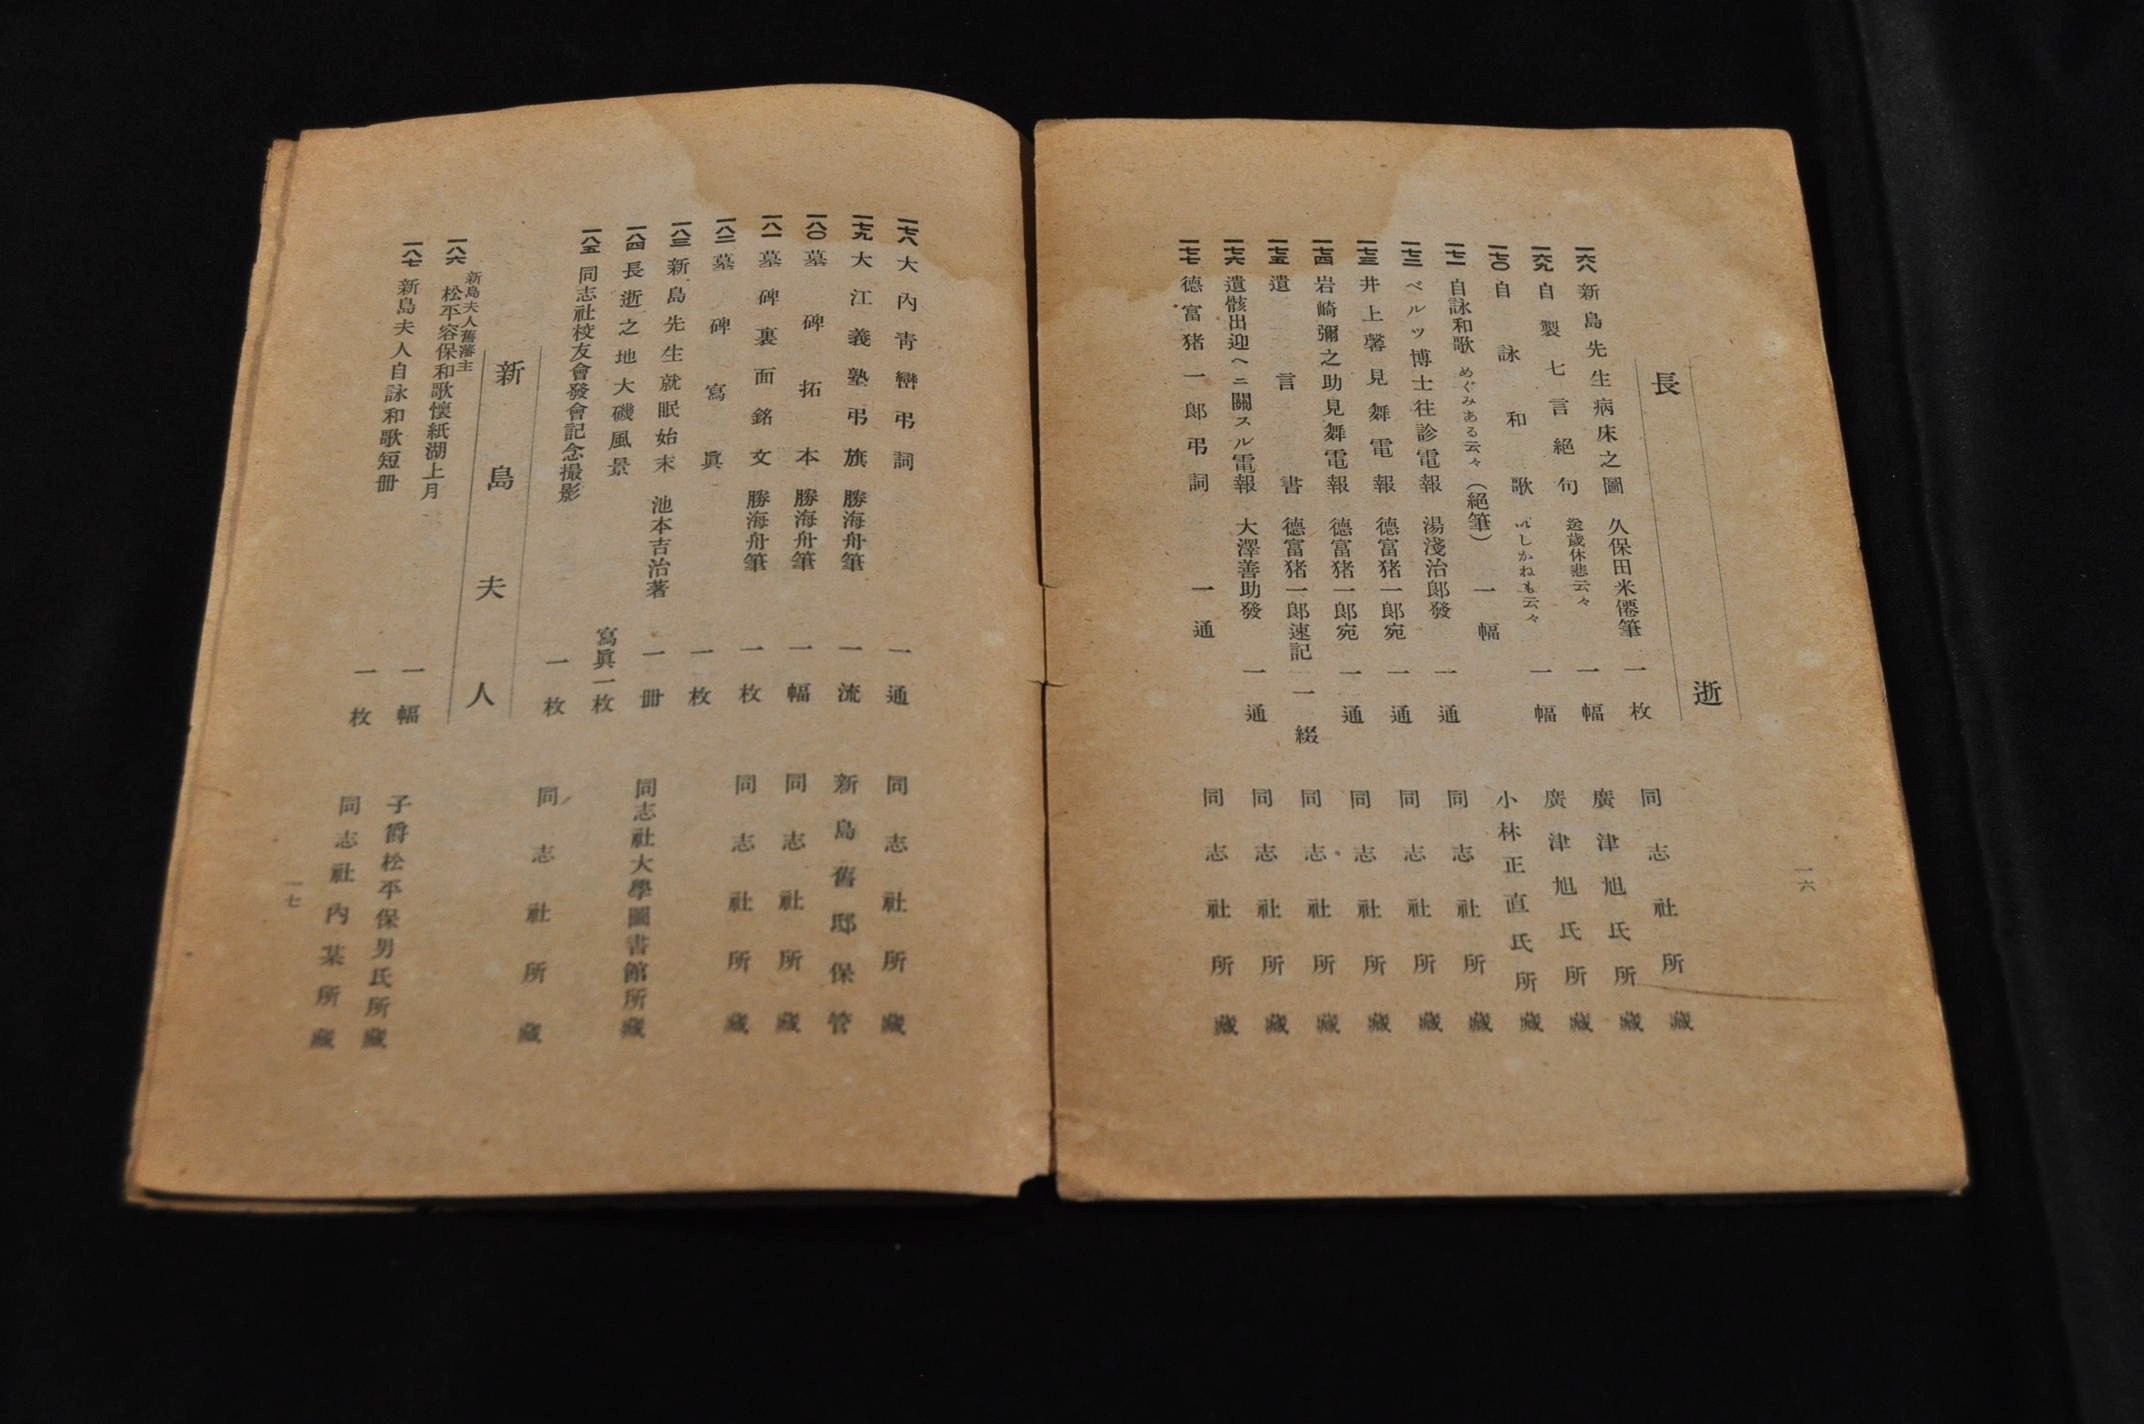 長逝
一六八 新島先生病床之圖 久保田米僊筆 一枚 同志社所藏
一六九 自製七言絕句 送歲休悲云々 一幅 廣津旭氏所藏
一七〇 自詠和歌 いしかねも云々 一幅 廣津旭氏所藏
一七一 自詠和歌 めぐみある云々(絕筆) 一幅 小林正直氏所藏
一七二 ベルツ博士往診電報 湯淺治郞發 一通 同志社所藏
一七三 井上馨見舞電報 德富猪一郞宛 一通 同志社所藏
一七四 岩崎彌之助見舞電報 德富猪一郞宛 一通 同志社所藏
一七五 遺言書 德富猪一郞速記 一綴 同志社所藏
一七六 遺骸出迎ヘニ關スル電報 大澤善助發 一通 同志社所藏
一七七 德富猪一郞弔詞 一通 同志社所藏
一六
一七八 大內靑巒弔詞 一通 同志社所藏
一七九 大江義塾弔旗 勝海舟筆 一流 新島舊邸保管
一八〇 墓碑拓本 勝海舟筆 一幅 同志社所藏
一八一 墓碑裏面銘文 勝海舟筆 一枚 同志社所藏
一八二 墓碑寫眞 一枚
一八三 新島先生就眠始末 池本吉治著 一冊 同志社大學圖書館所藏
一八四 長逝之地大磯風景 寫眞一枚
一八五 同志社校友會發會記念撮影 一枚 同志社所藏
新島夫人
新島夫人舊藩主
一八六 松平容保和歌懷紙湖上月 一幅 子爵松平保男氏所藏
一八七 新島夫人自詠和歌短冊 一枚 同志社內某所藏
一七